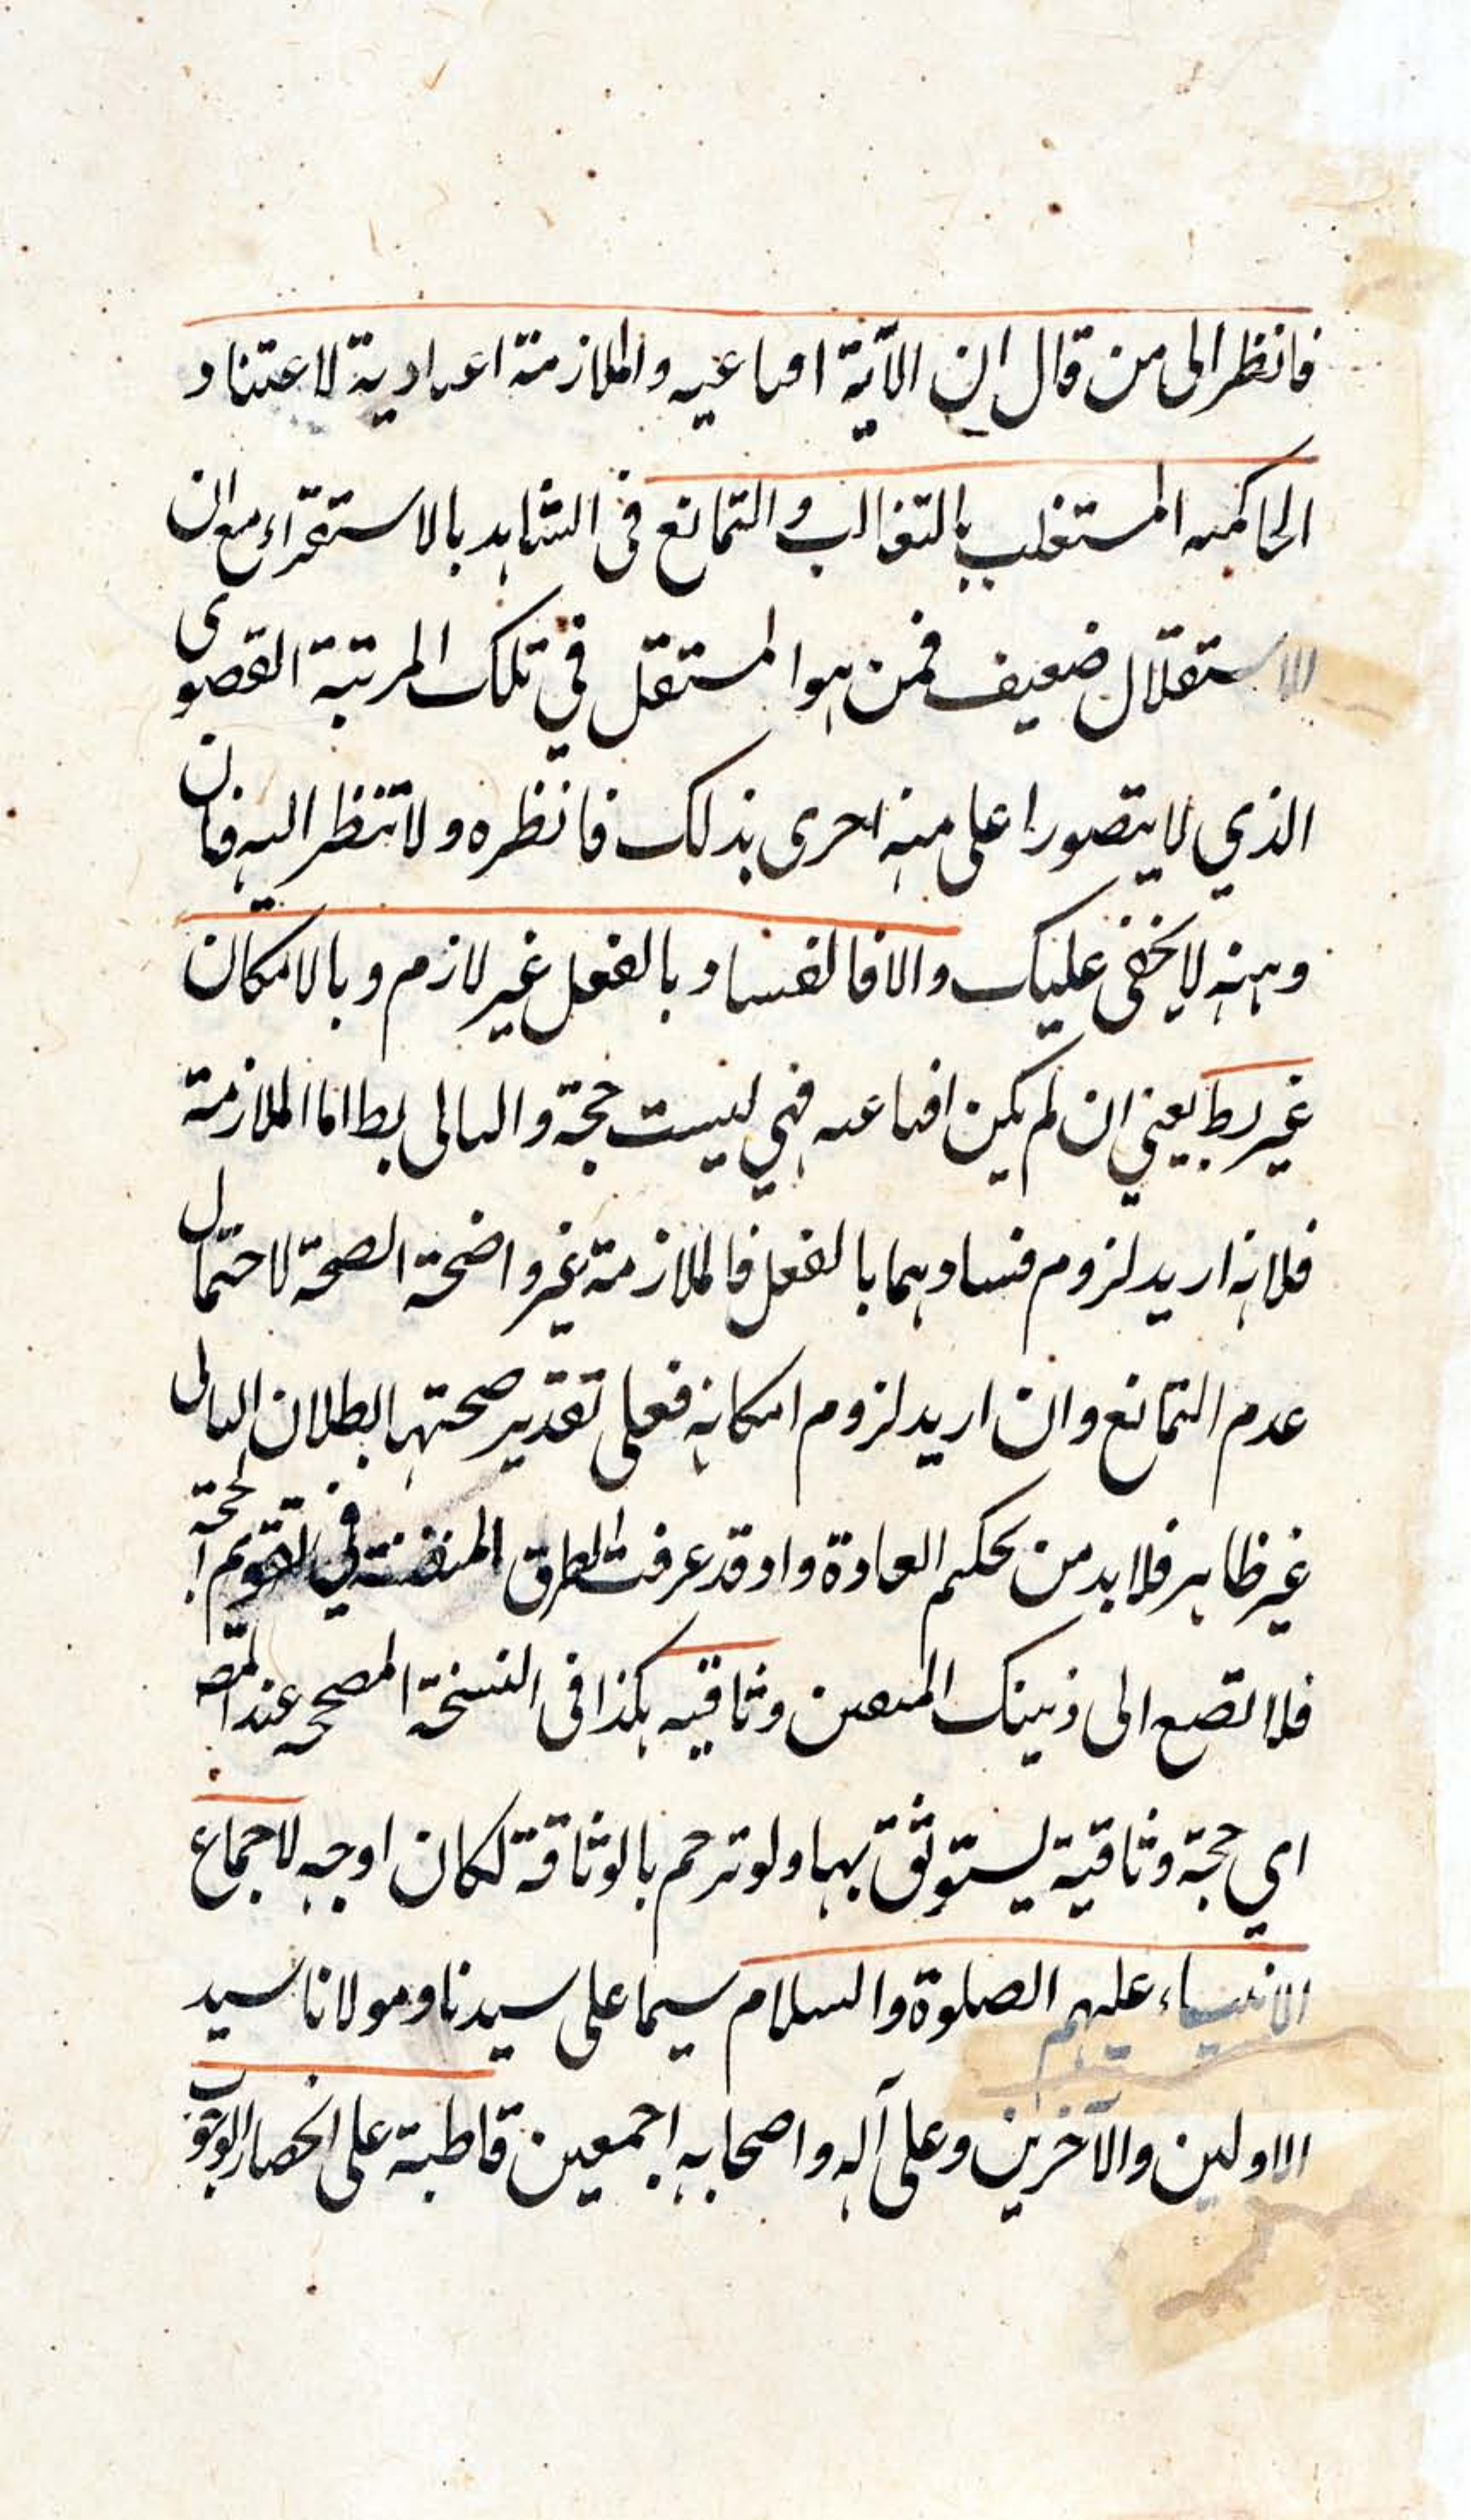 فانظر الى من قال ان الآية اقناعيه والملازمة اعتيادية لاعتناد
الحاكميه المستغلب بالتغالب والتمانع فى الشاهد بالاستقراء مع ان
الاستقلال ضعيف فمن هو المستقل في تلك المرتبة القصوى
الذي لا يتصور اعلى منه احرى بذلك فانظره ولا تنظر اليه فان
وهنه لا يخفى عليك والا فالفساد بالفعل غير لازم وبالامكان
غير بط يعني ان لم يكن اقناعيه فهي ليست حجة والتالى بط اما الملازمة
فلانه اريد لزوم فسادهما بالفعل فالملازمة غير واضحة الصحة لاحتمال
عدم التمانع وان اريد لزوم امكانه فعلى تقدير صحتها بطلان التالى
غير ظاهر فلا بد من تحكيم العادة واذ قد عرفت الطرق في
فلا تصغ الى ذينك المنعين وثاقيه هكذا فى النسخة المصححه عند المصـ
اي حجة وثاقية يستوثق بها ولو ترحم بالوثاقة لكان اوجه لاجماع
الانبياء عليهم الصلوة والسلام سيما على سيدنا ومولانا سيد
الاولين والآخرين وعلى آله واصحابه اجمعين قاطبة على انحصار الوجوب